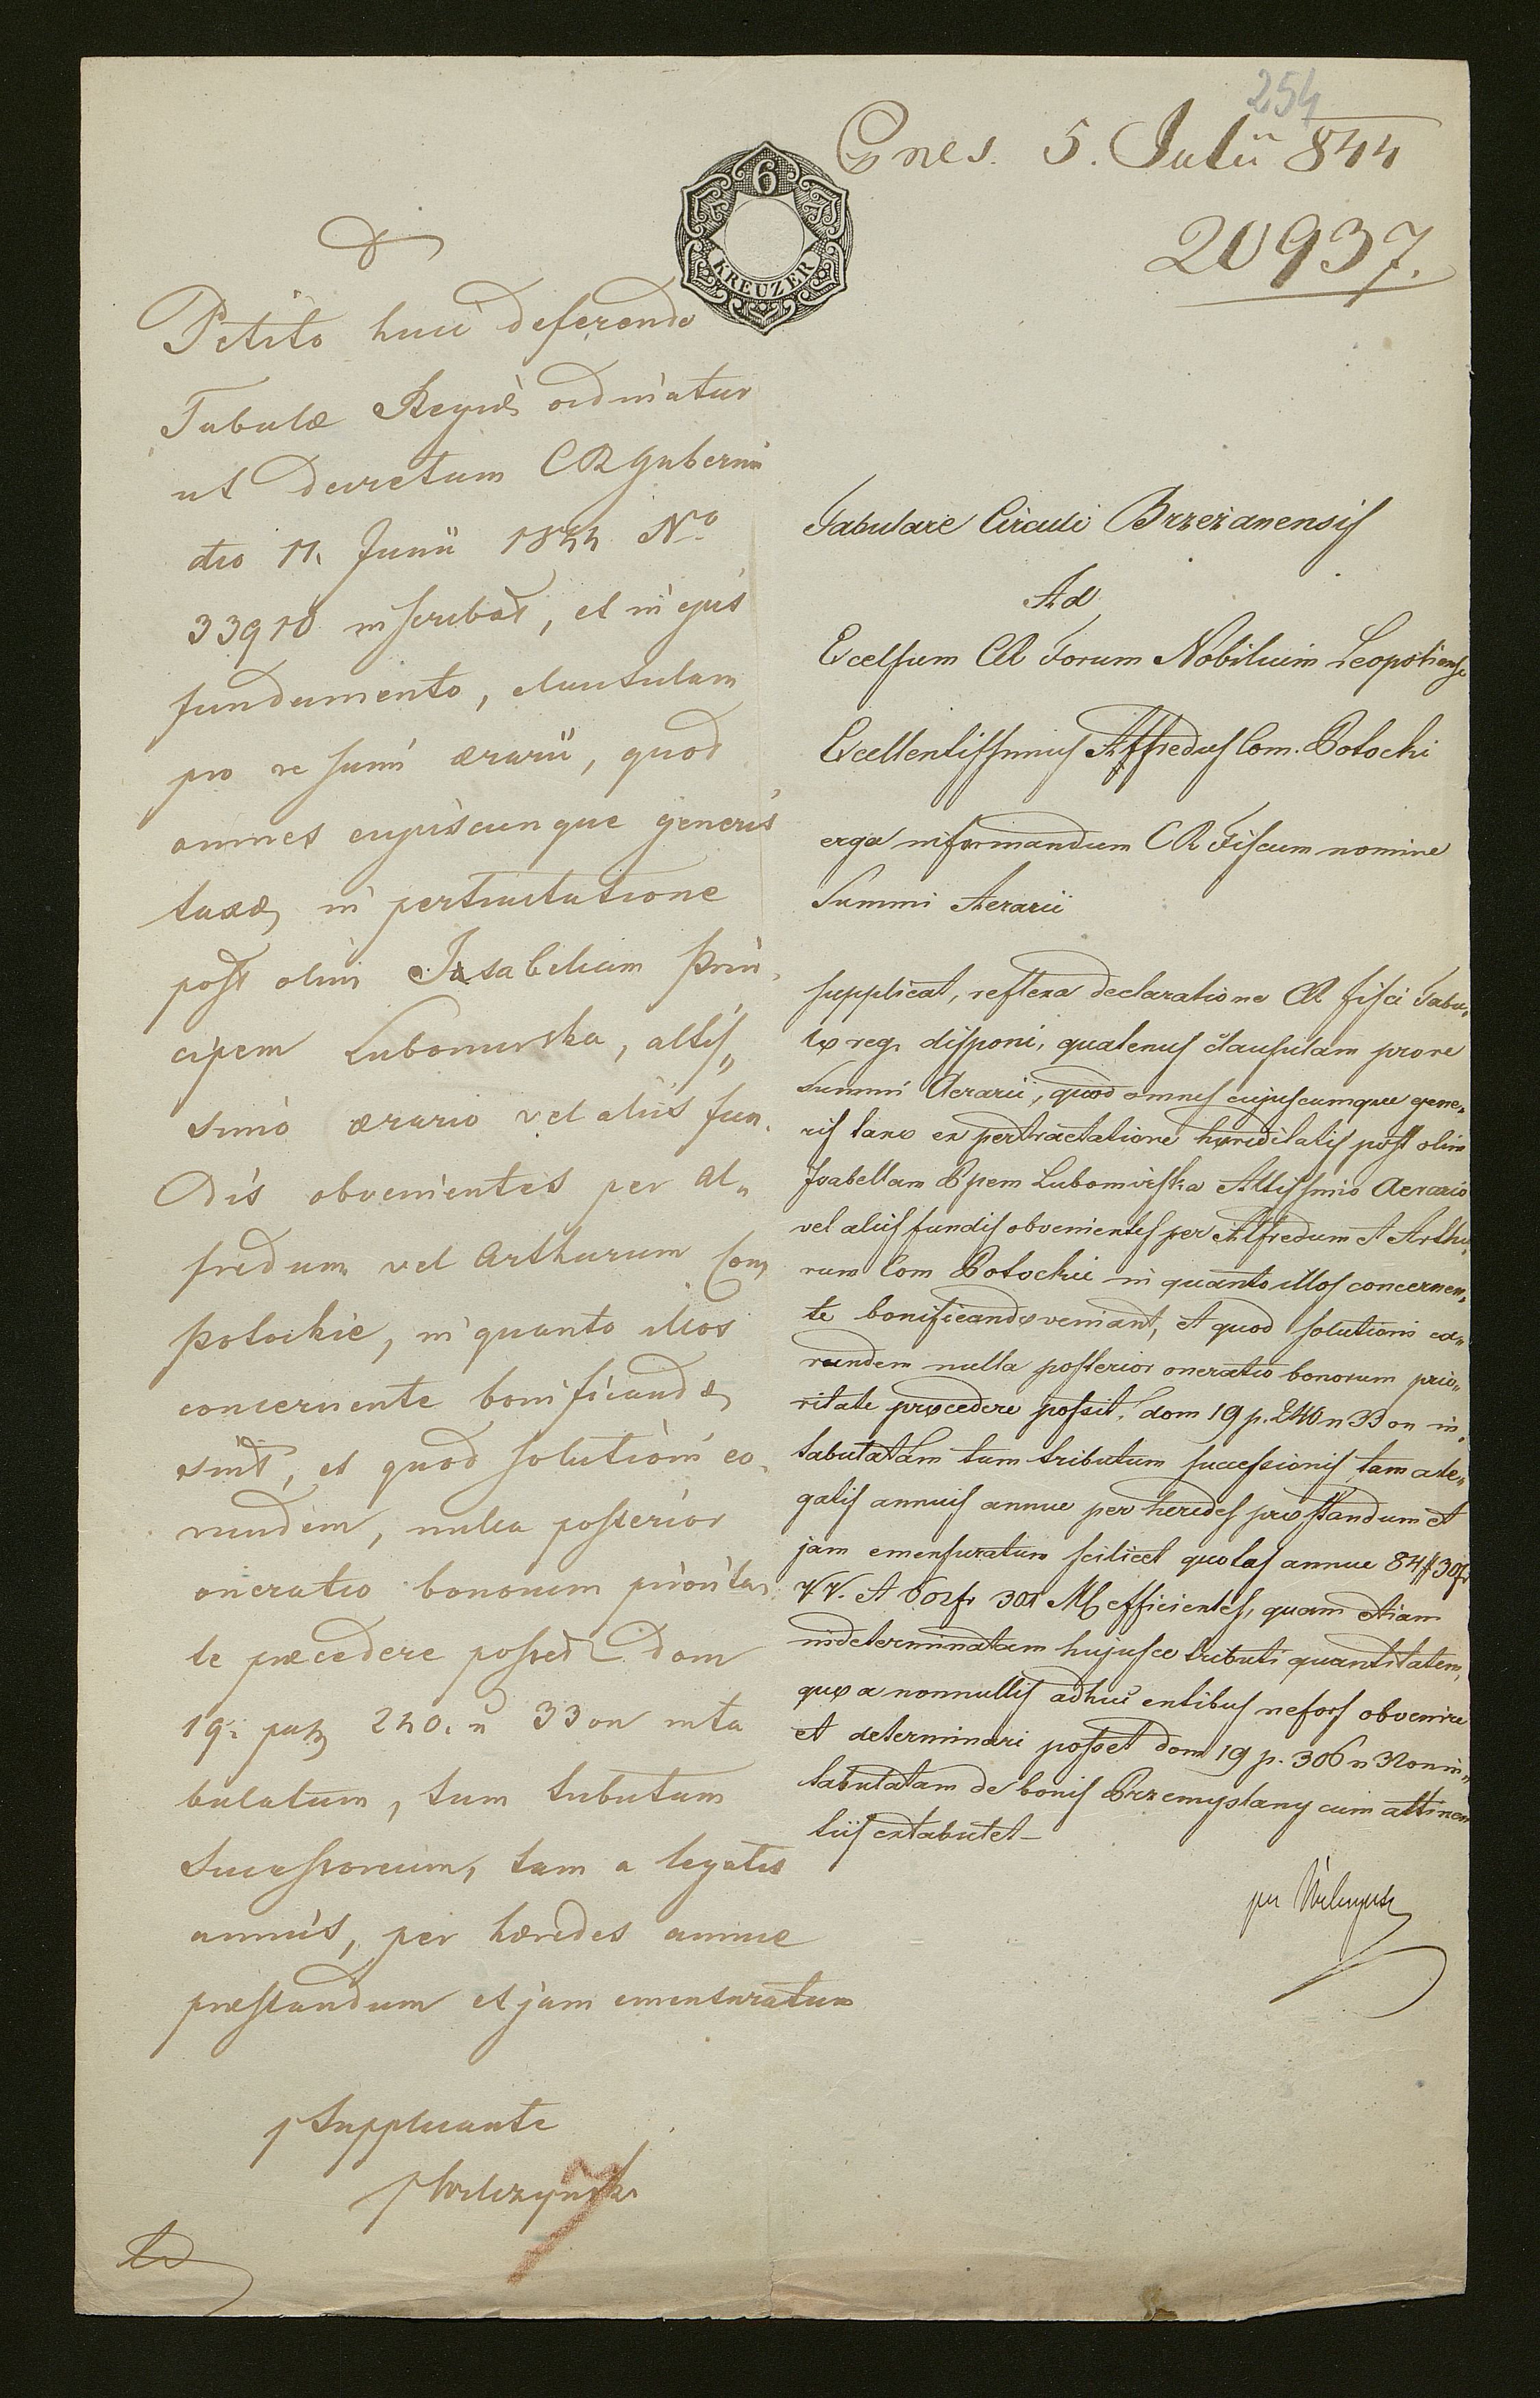 254
Gnes. 5. Julii 844
20937.
6
KREUZER
Petito huic deferendo
Tabulæ Regiæ ordinatur
ut decretum CR Gubernii
dto 11. Junii 1844 No
33910 inscribat, et in ejus
fundamento, clausulam
pro re summi ærarii, quod
omnes cujuscunque generis
taxæ, in pertractatione
post olim Isabellam Prin„
cipem Lubomirska, altis„
simo ærario vel aliis fun„
dis obvenientes per Al„
fredum vel Arthurum Com
Potockie, in quanto illos
concernente bonificandæ
sint, et quod solutioni ea„
rundem, nulla posterior
oneratio bonorum priorita„
te præcedere posset dom
19. pag 240. n 33 on inta
bulatam, tum tributum
Successorium, tam a legatis
annuis, per hæredes annue
præstandum et jam emensuratum
p Supplicante
p Wilczynski
Tabulare Circuli Brzeżanensis
Ad
Excelsum CR Forum Nobilium Leopoliense
Excellentissimus Alfredus Com. Potocki
erga informandum CR Fiscum nomine
Summi Aerarii
supplicat, reflexa declaratione CR fisci Tabu„
læ reg. disponi, quatenus clausulam pro re
Summi Aerarii, quod omnes cujuscumque gene„
ris taxæ ex pertractatione hæreditatis post olim
Isabellam Ppem Lubomirska Altissimo Aerario
vel aliis fundis obvenientes per Alfredum et Arthu„
rum Com Potockie in quanto illos concernen„
te bonificandæ veniant, et quod solutioni ea„
rundem nulla posterior oneratio bonorum prio„
ritate præcedere possit, dom 19 p. 240 n 33 on in„
tabulatam tum tributum successionis tam a le„
gatis annuis annue per heredes præstandum et
jam emensuratum scilicet quotas annue 84 f 30 x
VV. et efficientes, quam etiam
indeterminatam hujusce tributi quantitatem,
quæ a nonnullis adhuc entibus nefors obvenire
et determinari posset dom 19 p. 306 n 32 on in„
tabulatam de bonis Przemyslany cum attinen
tiis extabulet –
per Wilczynski